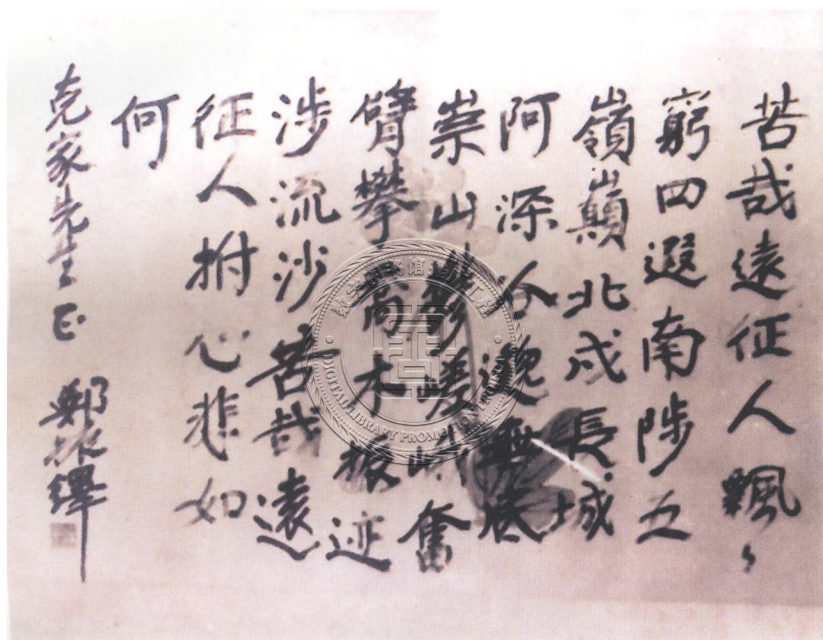 苦哉遠征人飄〻
窮四遐南陟五
嶺巔北戍長城
阿深谷邈無底
崇山鬱嵯峨奮
臂攀喬木振迹
涉流沙苦哉遠
征人拊心悲如
何
克家先生正 鄭振鐸
数字图书馆推广工程
DIGITAL LIBRARY PROMOTION PROJECT